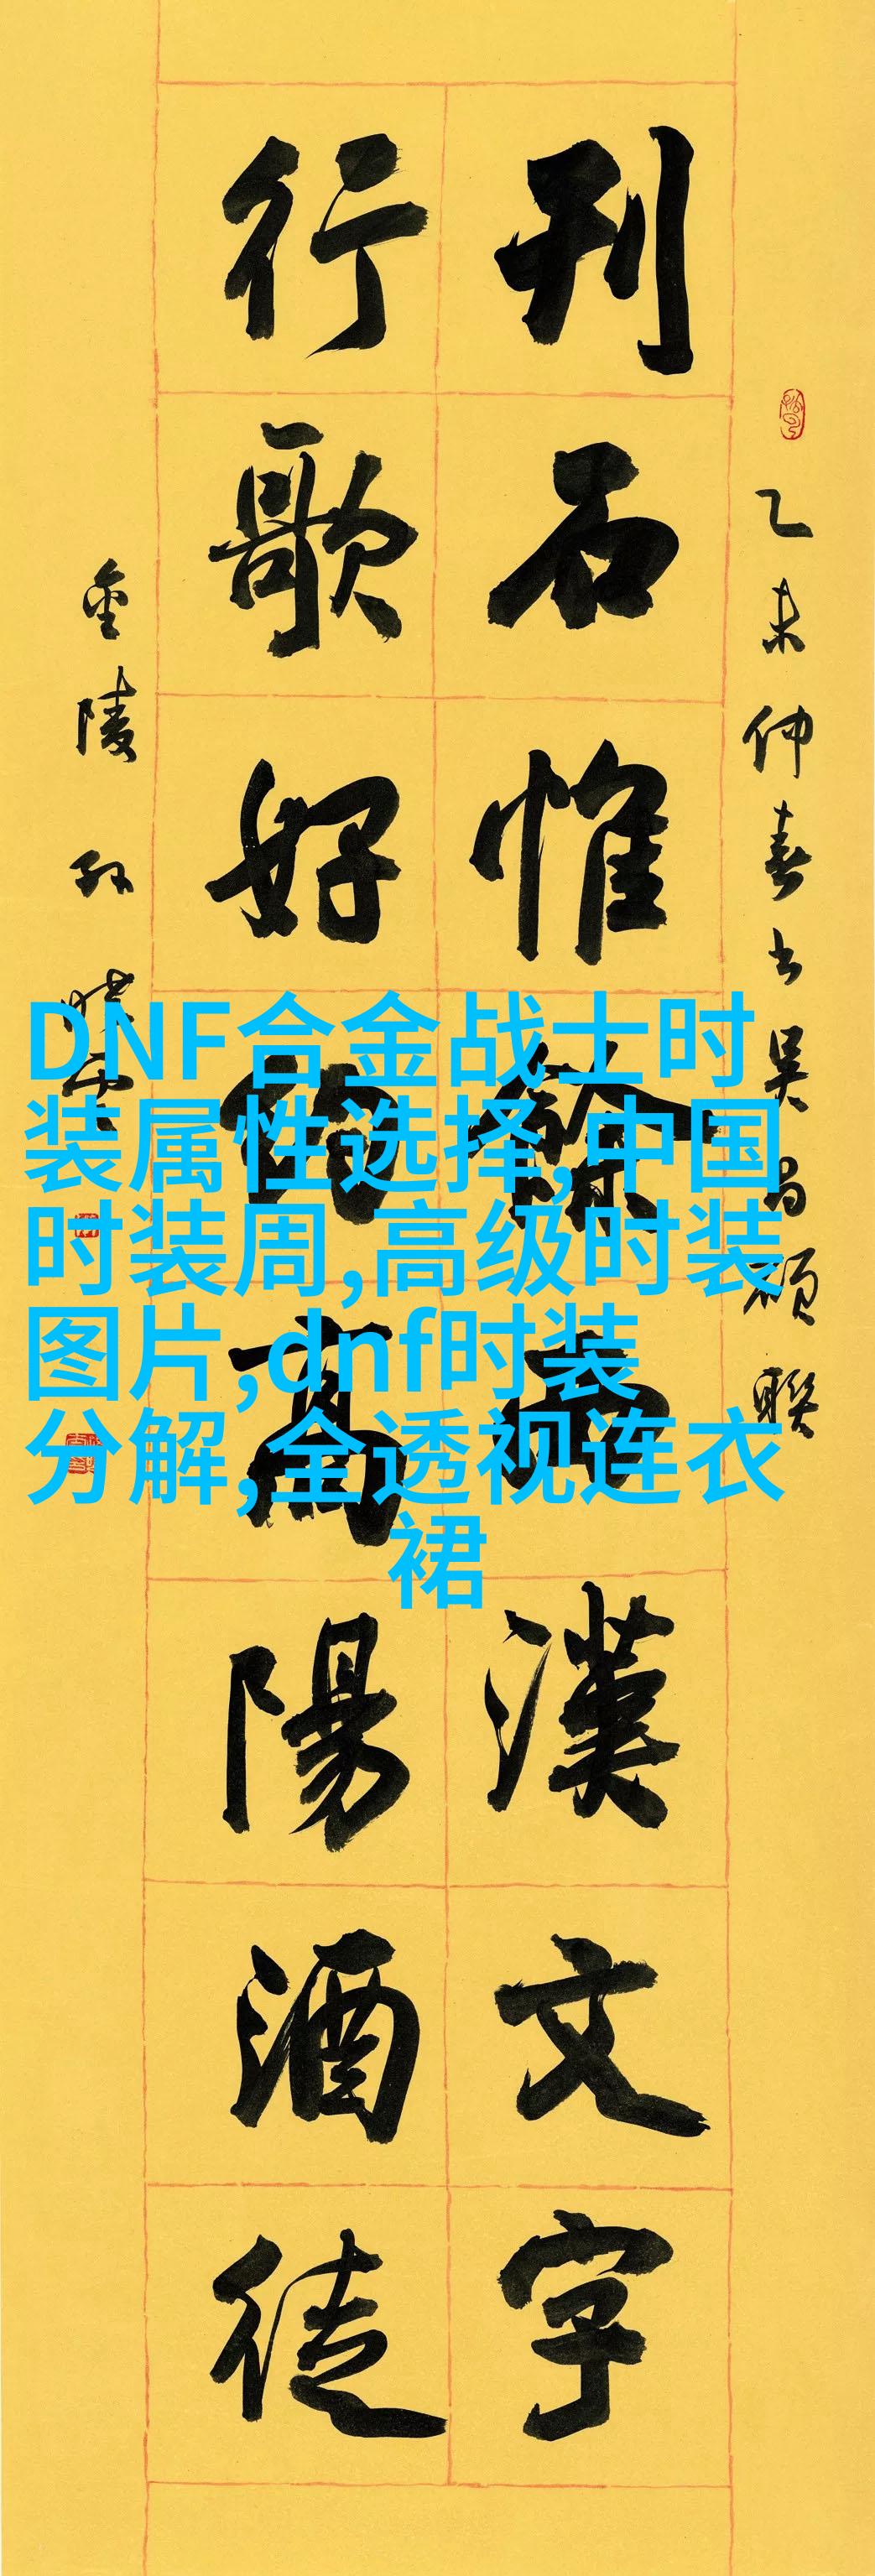 乙未仲春书吳昌碩聯
刊石惟餘漢文字
行歌好約高陽酒徒
金陵孙曉雲
DNF合金战士时
装属性选择,中国
时装周,高级时装
图片,dnf时装
分解,全透视连衣
裙